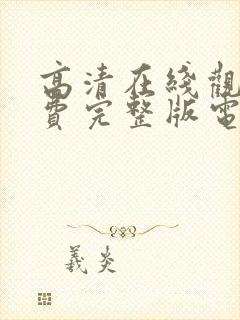 高清在綫觀
費完整版電
義炎